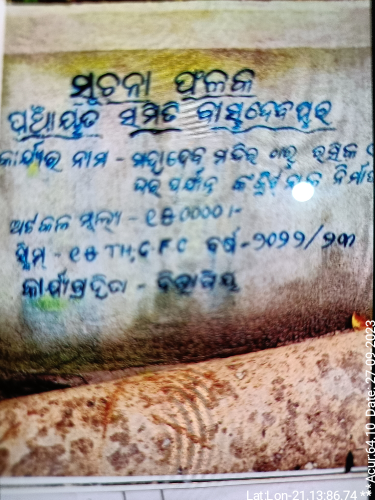 ସୂଚନା ଫଳକ
ପଞ୍ଚାୟତ ସମିତି ବାସୁଦେବପୁର
କାର୍ଯ୍ୟର ନାମ - ମହାଦେବ ମନ୍ଦିର ଠାରୁ ରସିକ
ଘର ପର୍ଯ୍ୟନ୍ତ କଂକ୍ରିଟ ନିର୍ମାଣ
ଅଟକଳ ମୂଲ୍ୟ - ୧୫୦୦୦୦/-
ସ୍କିମ୍ - ୧୫ TH, C F C ବର୍ଷ - ୨୦୨୨/୨୩
କାର୍ଯ୍ୟଗ୍ରହିତା - ବିଭାଗିୟ
Acur:64.10 Date: 27-09-2023
Lat Lon-21 13:86.74 **